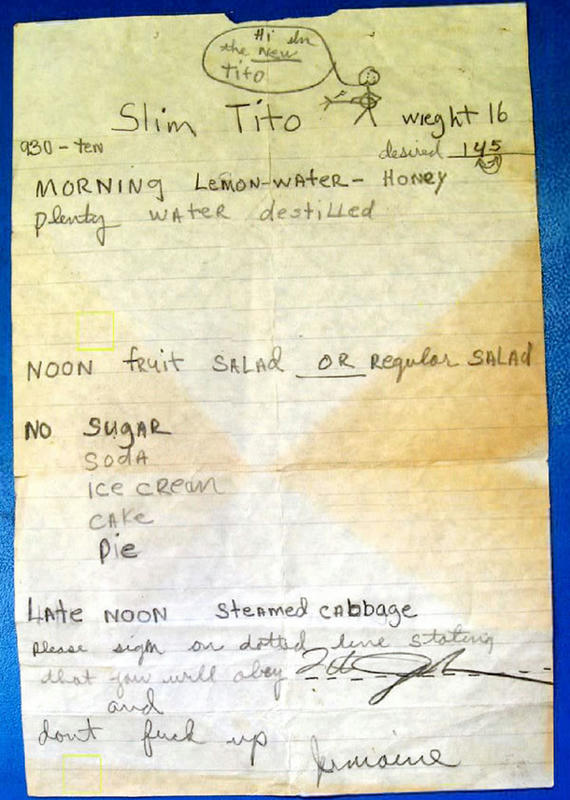 Hi Im
the New
Tito
Slim Tito wieght 16
930-ten desired 145
MORNING LEMON-WATER- HONEY
Plenty WATER destilled
NOON fruit SALAD OR Regular SALAD
NO SUGAR
SODA
ICE CREAM
CAKE
Pie
LATE NOON STEAMED CABBAGE
Please sign on dotted line stating
that you will abey
and
dont fuck up
Jermaine